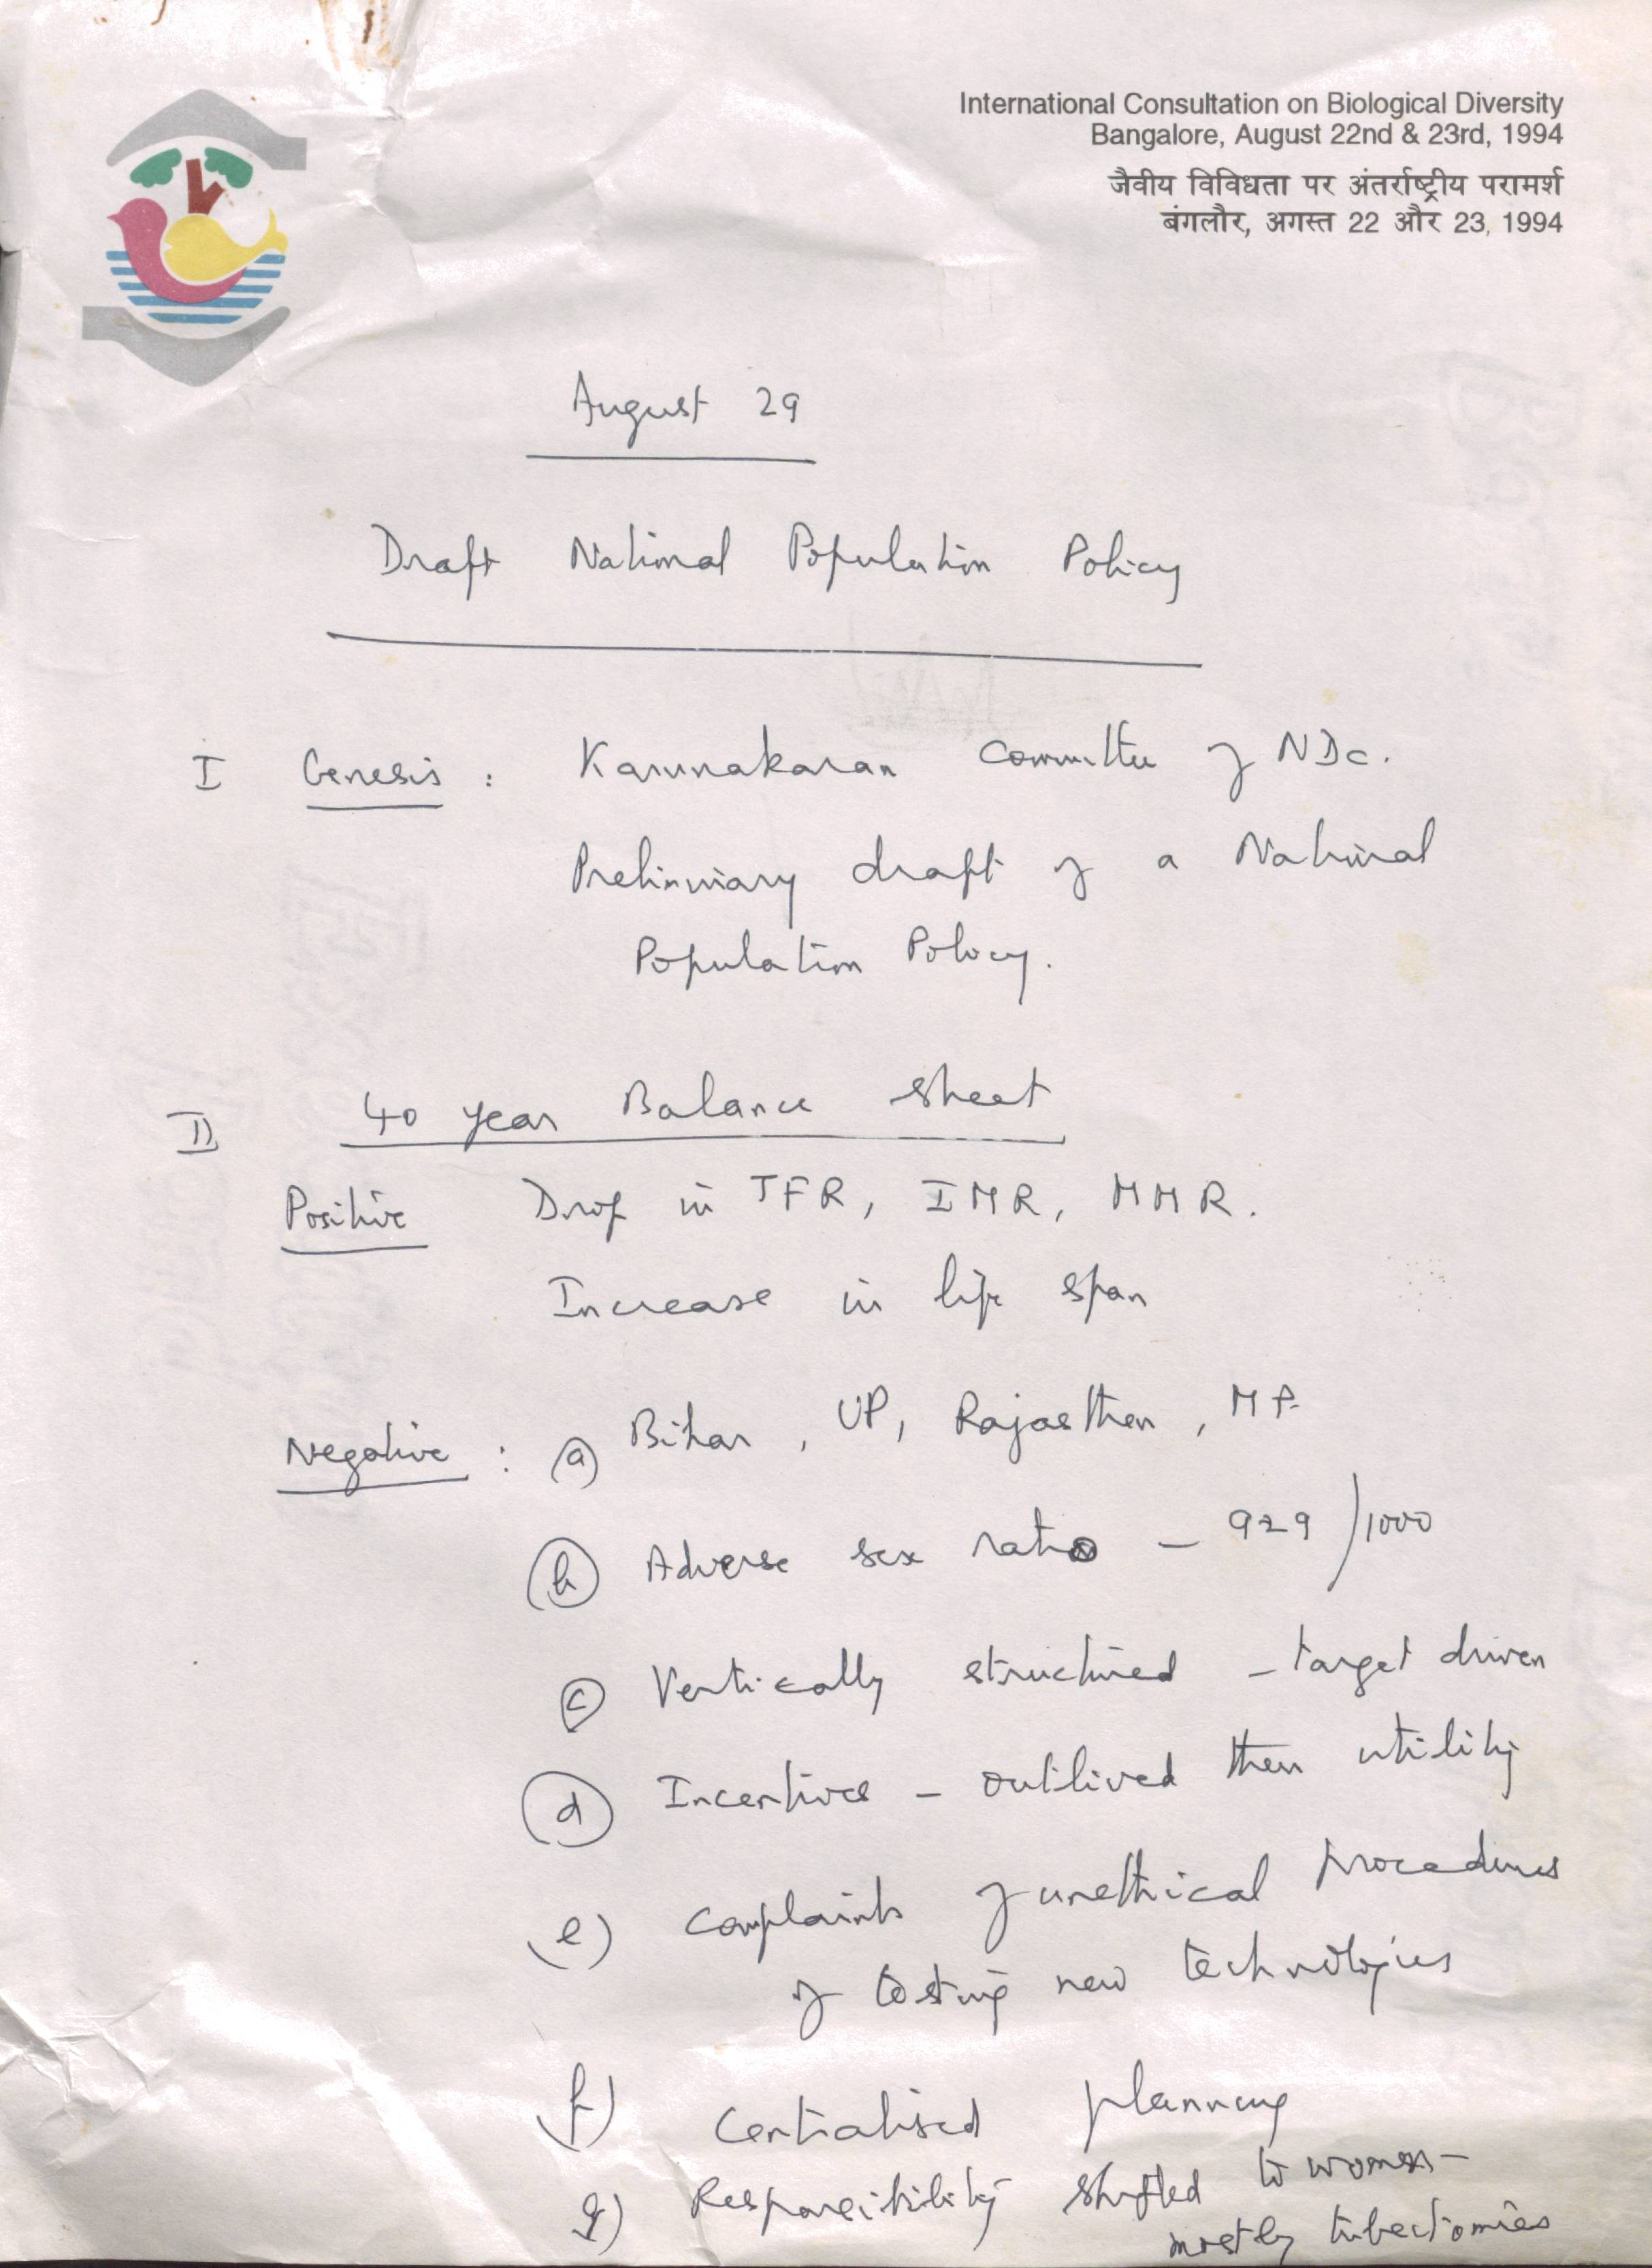 International Consultation on Biological Diversity
Bangalore, August 22nd & 23rd, 1994
जैवीय विविधता पर अंतर्राष्ट्रीय परामर्श
बंगलौर, अगस्त 22 और 23, 1994
August 29
Draft National Population Policy
I Genesis : Karunakaran Committee of NDC.
Preliminary draft of a National
Population Policy.
II 40 year Balance sheet
Positive Drop in TFR, IMR, MMR.
Increase in life span
Negative : (a) Bihar, UP, Rajasthan, MP
(b) Adverse sex ratio – 929/1000
(c) Vertically structured – target driven
(d) Incentives – outlived their utility
(e) Complaints of unethical procedures
of testing new technologies
f) Centralised planning
g) Responsibility shifted to women –
mostly tubectomies